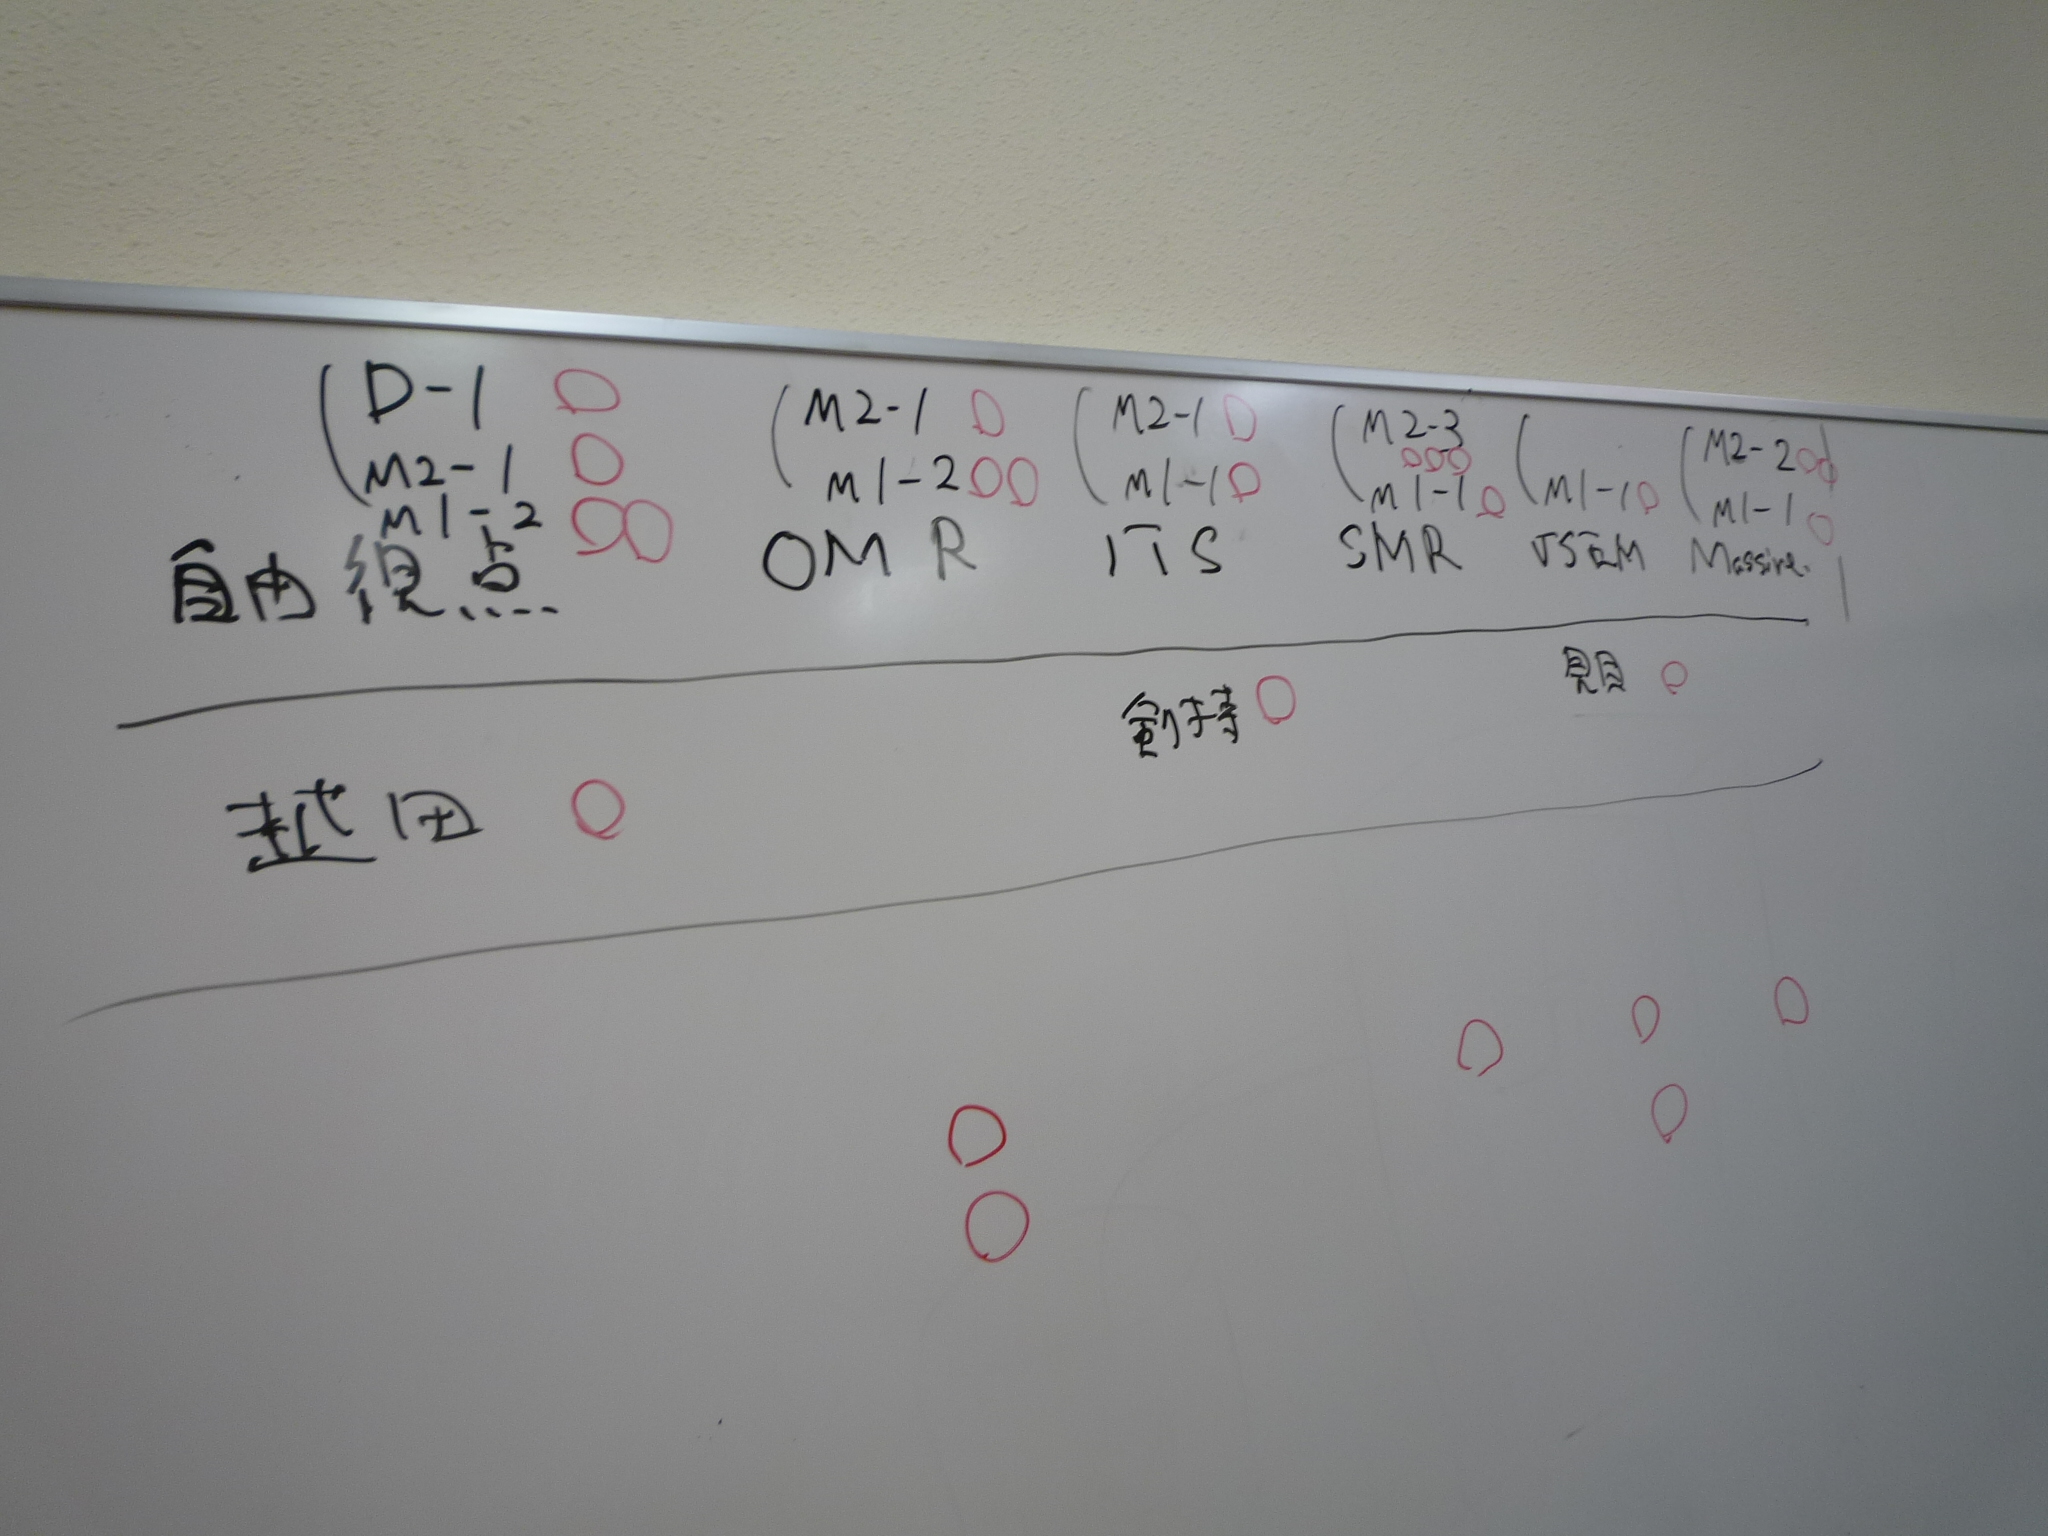 D-1
M2-1
M1-2
自由視点....
M2-1
M1-2
OMR
M2-1
M1-1
ITS
M2-3
M1-1
SMR
M1-1
M2-2
M1-1
Massive.
剣持
越田